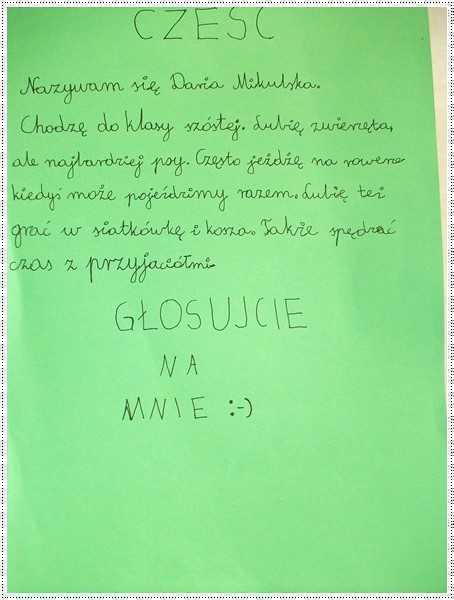 CZEŚĆ
Nazywam się Daria Mikulska.
Chodzę do klasy szóstej. Lubię zwierzęta,
ale najbardziej psy. Często jeżdżę na rowerze
kiedyś może pojeździmy razem. Lubię też
grać w siatkówkę i kosza. Także spędzać
czas z przyjaciółmi.
GŁOSUJCIE
NA
MNIE :-)